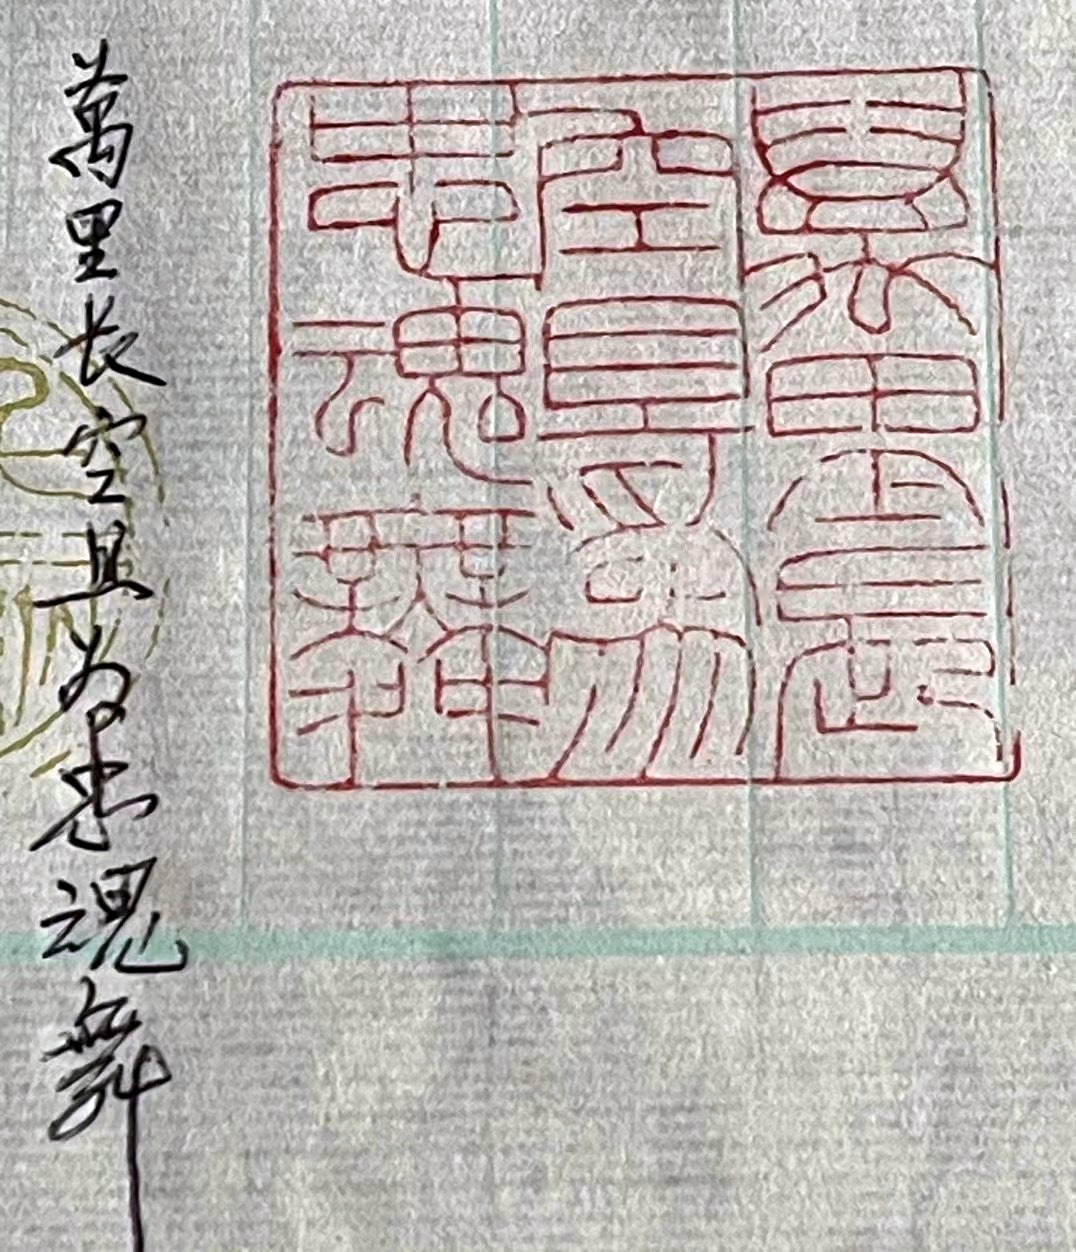 萬里長
空且爲
忠魂舞
萬里长空且为忠魂舞